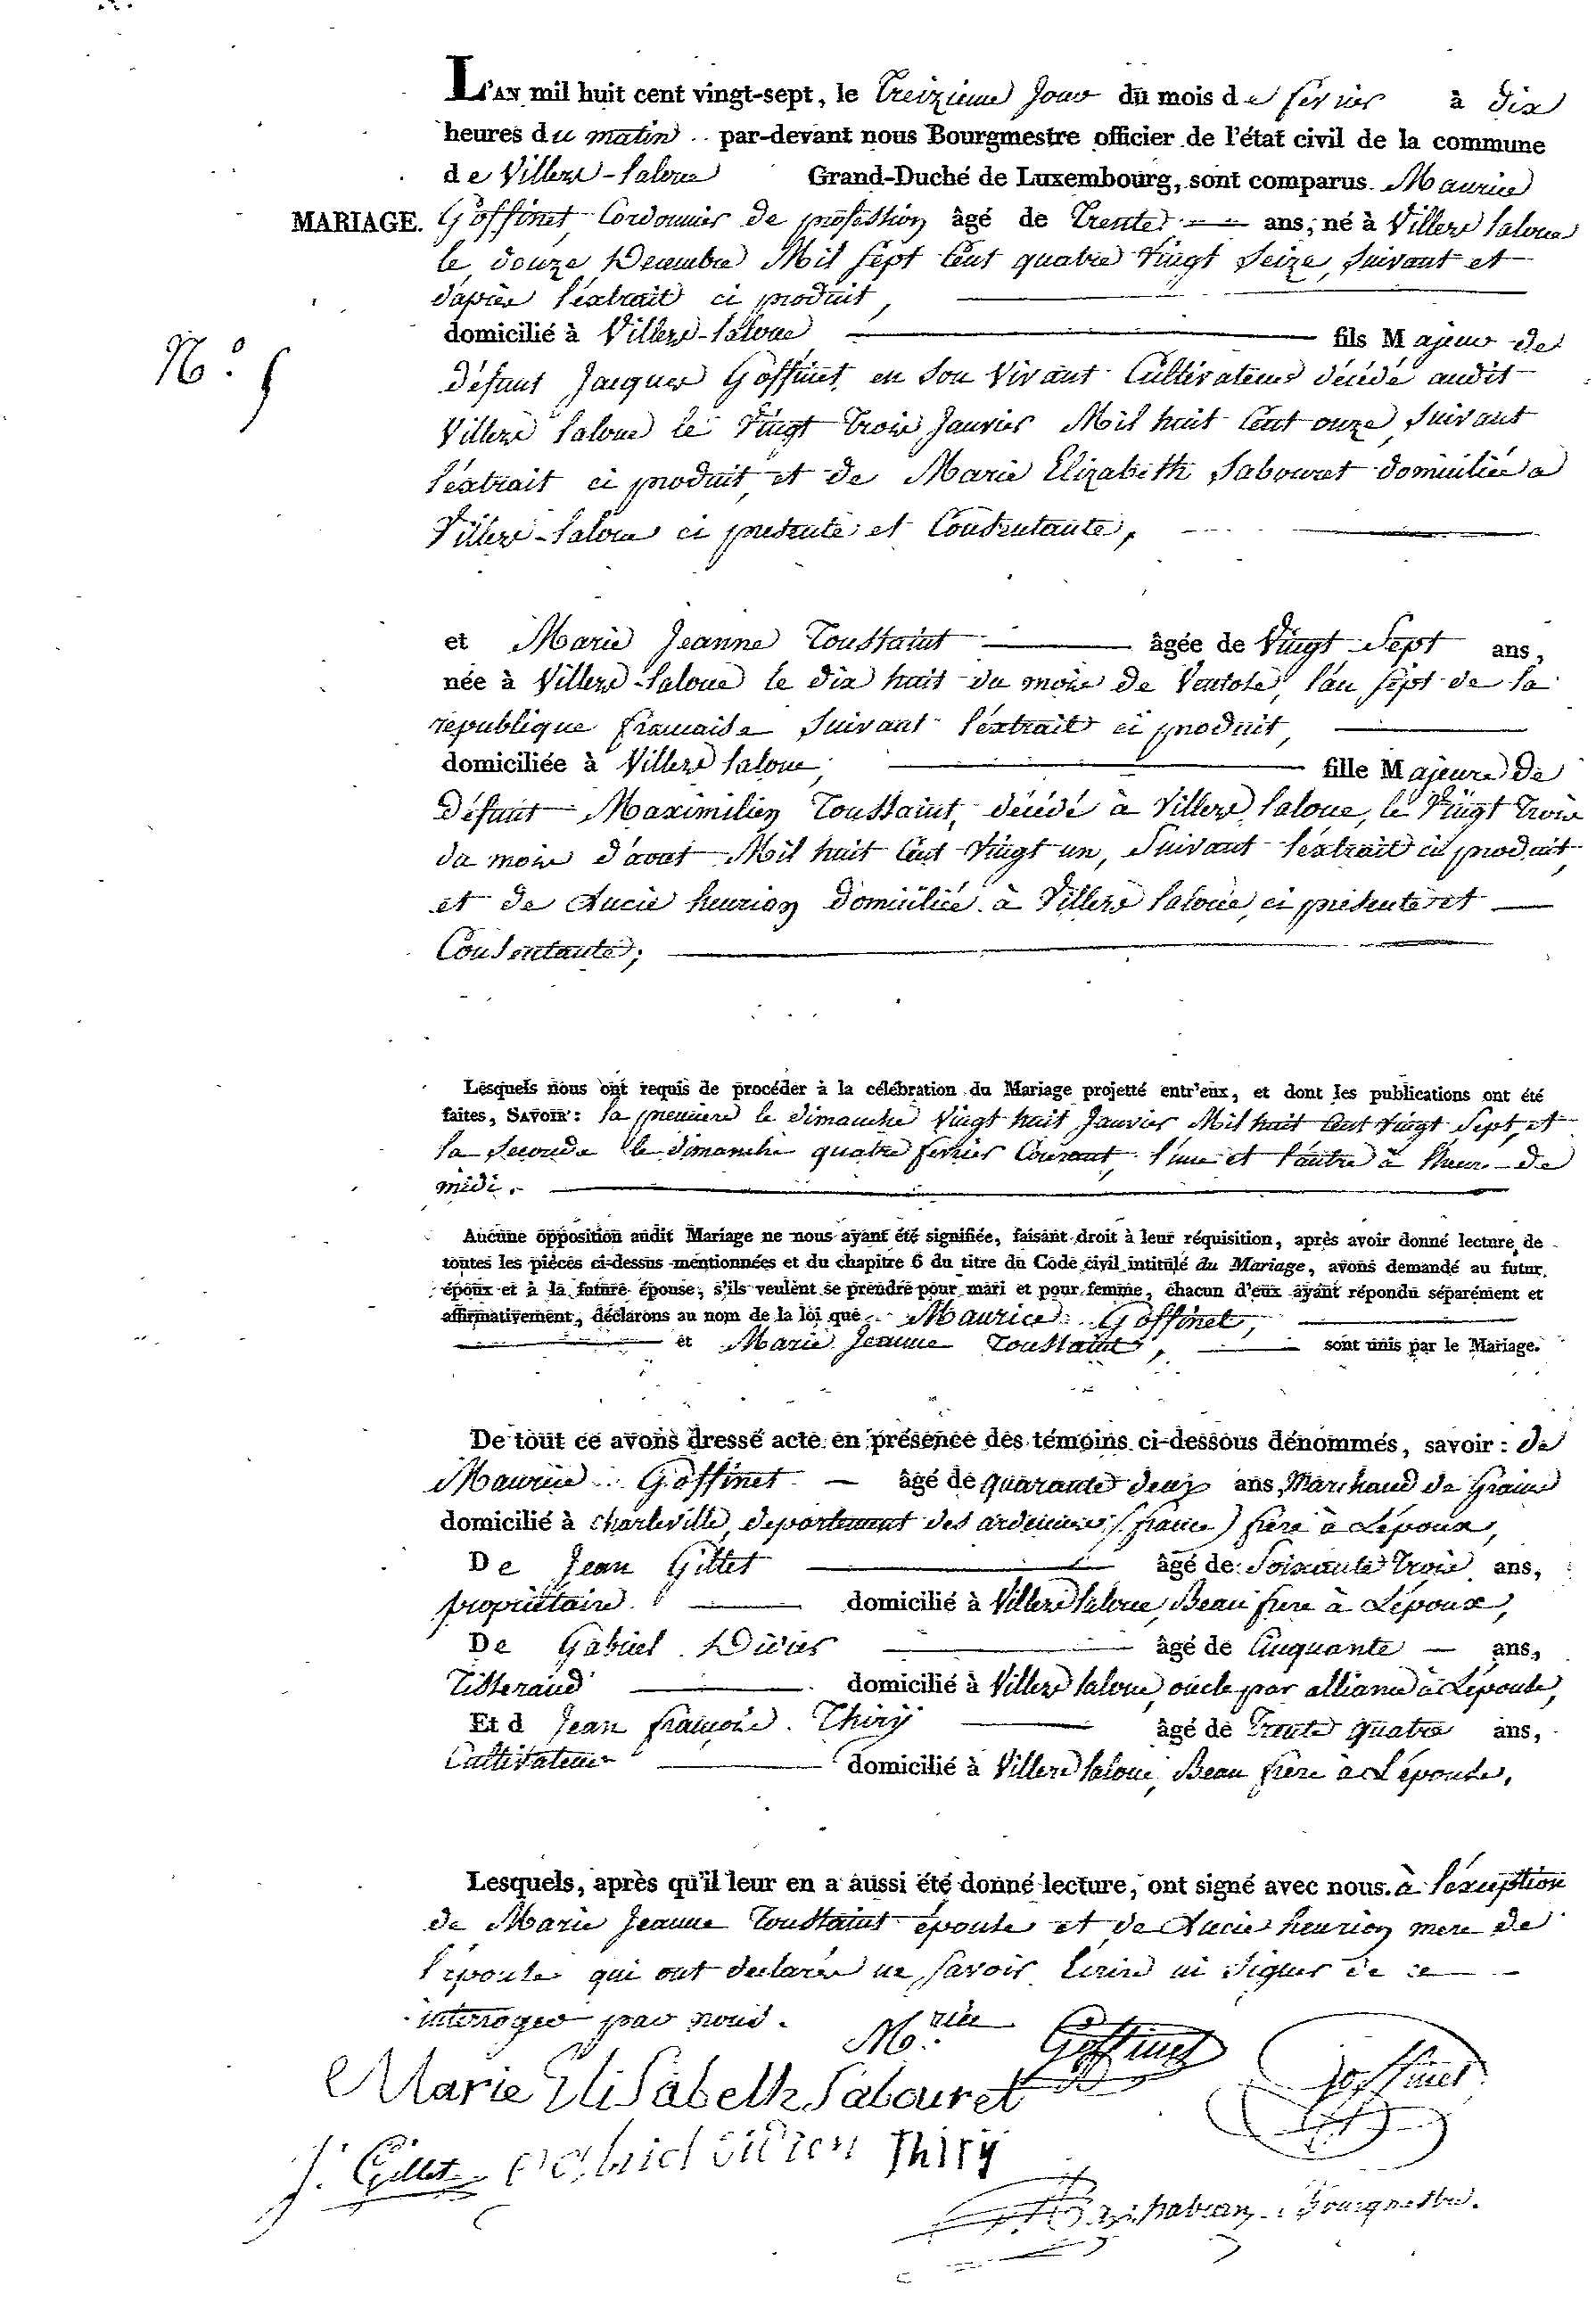 L'AN mil huit cent vingt-sept, le Treizieme Jour du mois de fevrier à dix
heures du matin par-devant nous Bourgmestre officier de l'état civil de la commune
de Villers-Laloue Grand-Duché de Luxembourg, sont comparus Maurice
MARIAGE. Goffinet, Cordonnier de profession âgé de Trente ans, né à Villers Laloue
le douze Decembre Mil Sept Cent quatre Vingt Seize, Suivant et
d'après l'extrait ci produit,
domicilié à Villers-Laloue fils Majeur de
N.º 5
défunt Jacques Goffinet en Son Vivant Cultivateur décédé audit
Villers Laloue le Vingt Trois Janvier Mil huit Cent onze, Suivant
l'extrait ci produit, et de Marie Elizabeth Sabouret domiciliée a
Villers-Laloue ci presente et Consentante,
et Marie Jeanne Toussaint âgée de Vingt Sept ans,
née à Villers-Laloue le dix huit du mois de Ventose, l'an Sept de la
republique francaise Suivant l'extrait ci produit,
domiciliée à Villers Laloue, fille Majeure de
défunt Maximilien Toussaint, décédé à Villers Laloue, le Vingt Trois
du mois d'aout Mil huit Cent Vingt un, Suivant l'extrait ci produit,
et de Lucie henrion domiciliée à Villers Laloue, ci presente et
Consentante;
Lesquels nous ont requis de procéder à la célébration du Mariage projetté entr'eux, et dont les publications ont été
faites, SAVOIR: la premiere le dimanche Vingt huit Janvier Mil huit Cent Vingt Sept, et
la Seconde le dimanche quatre fevrier Courant, l'une et l'autre à l'heure de
midi.
Aucune opposition audit Mariage ne nous ayant été signifiée, faisant droit à leur réquisition, après avoir donné lecture de
toutes les pièces ci-dessus mentionnées et du chapitre 6 du titre du Code civil intitulé du Mariage, avons demandé au futur
époux et à la future épouse, s'ils veulent se prendre pour mari et pour femme, chacun d'eux ayant répondu séparément et
affirmativement, déclarons au nom de la loi que Maurice Goffinet,
et Marie Jeanne Toussaint, sont unis par le Mariage.
De tout ce avons dressé acte en présence des témoins ci-dessous dénommés, savoir: de
Maurice Goffinet âgé de quarante deux ans, Marchand de Grains
domicilié à charleville, departement des ardennes (france) frere à L'époux,
De Jean Gillet âgé de Soixante Trois ans,
propriétaire domicilié à Villers Laloue, Beau frere à L'époux,
De Gabriel Didier âgé de Cinquante ans,
Tisserand domicilié à Villers Laloue, oncle par alliance à L'épouse,
Et d Jean françois Thiry âgé de Trente quatre ans,
Cultivateur domicilié à Villers Laloue, Beau frere à L'épouse,
Lesquels, après qu'il leur en a aussi été donné lecture, ont signé avec nous à l'exception
de Marie Jeanne Toussaint épouse et de Lucie henrion mere de
l'épouse qui ont declarés ne Savoir Ecrire ni Signer de ce
interrogés par nous.
M.rice Goffinet Goffinet
Marie Elisabeth Sabouret
J. Gillet gabriel didier Thiry
Bourgmestre.